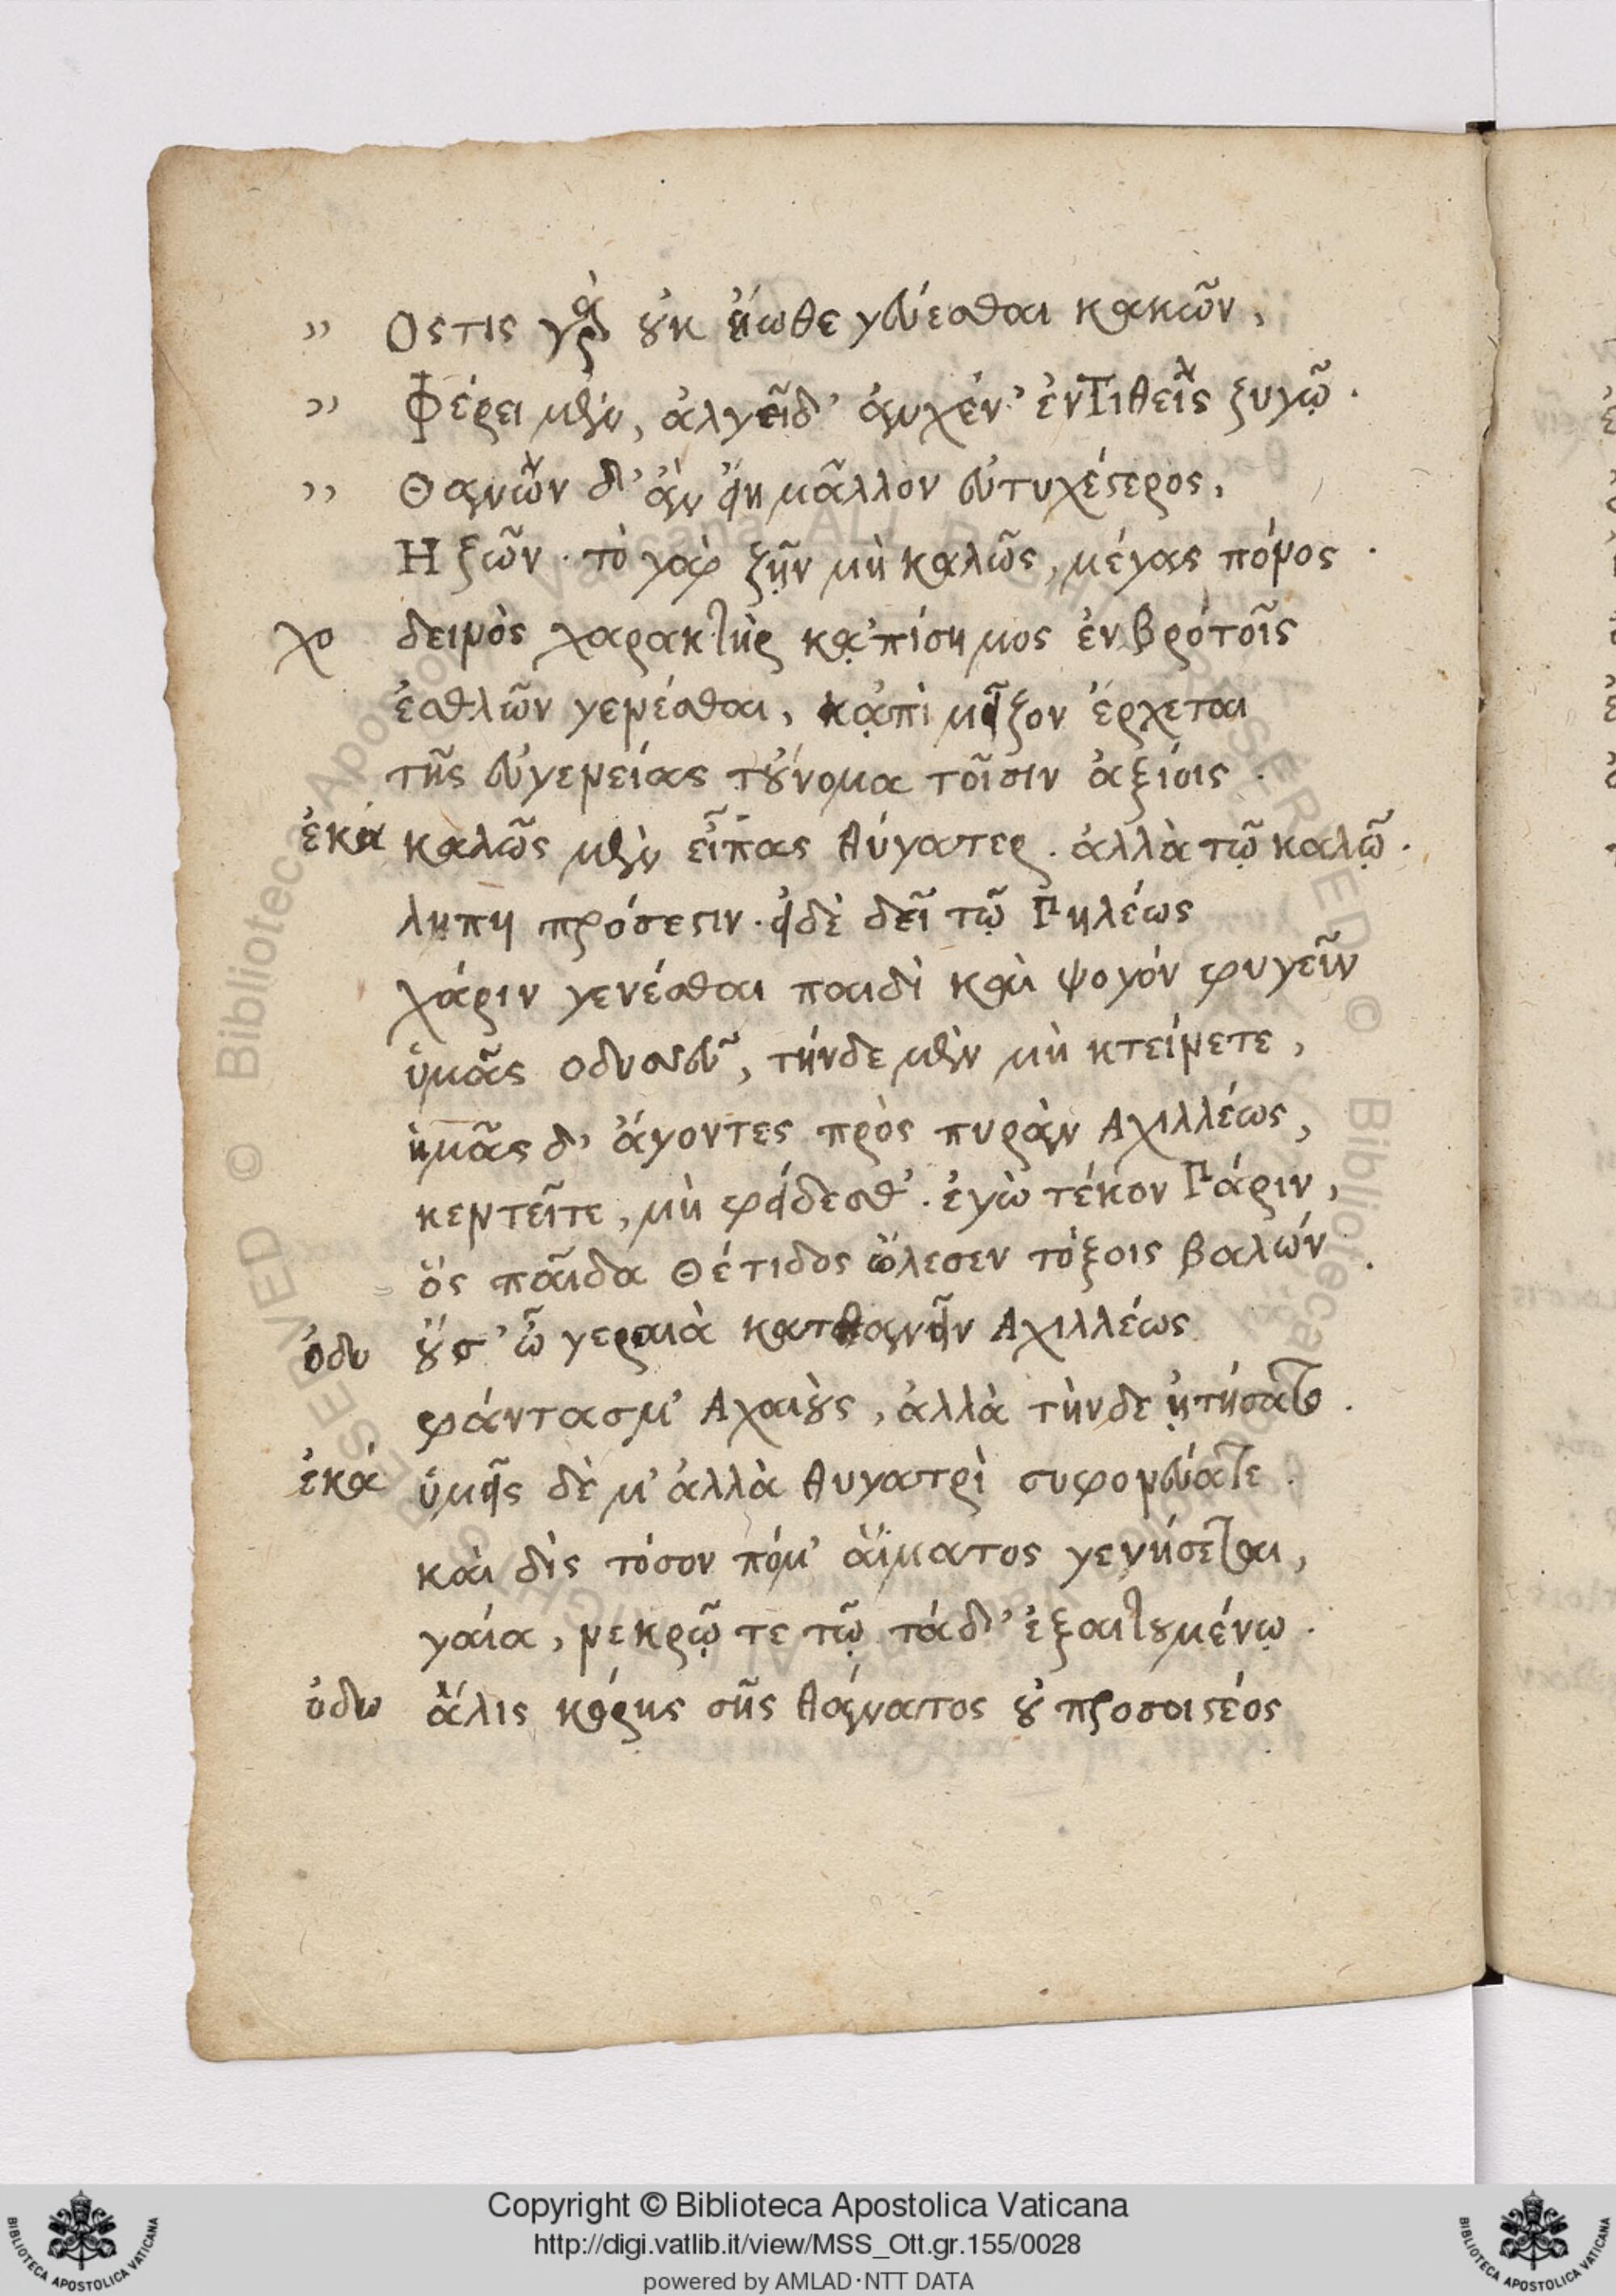 ,, Οςτις γὰρ οὐκ ἠίωθε γεύεσθαι κακῶν,
,, Φέρει μὲν, ἀλγεῖ δ' ἀυχέν' ἐντιθεὶς ζυγῷ.
,, Θανὼν δ' ἂν εἴη μᾶλλον εὐτυχέστερος,
Η ζῶν. τὸ γὰρ ζῇν μὴ καλῶς, μέγας πόνος.
χο δεινὸς χαρακτὴρ κᾀπίσημος ἐν βρότοῖς
ἐσθλῶν γενέσθαι, κᾀπὶ μεῖζον ἔρχεται
τῆς εὐγενείας τοὔνομα τοῖσιν ἀξίοις.
ἑκά καλῶς μὲν εἶπας θύγατερ. ἀλλὰ τῷ καλῷ.
λήπη πρόσεστιν. εἰ δὲ δεῖ τῷ Πηλέως
χάριν γενέσθαι παιδὶ καὶ ψογόν φυγεῖν
ὑμᾶς οδυσσεῦ, τήνδε μὲν μὴ κτείνετε,
ἡμᾶς δ' ἄγοντες πρὸς πυρὰν Αχιλλέως,
κεντεῖτε, μὴ φείδεσθ'. ἐγὼ τέκον Πάριν,
ὃς παῖδα Θέτιδος ὤλεσεν τόξοις βαλών.
ὀδυ οὔ σ' ὦ γεραιὰ κατθανεῖν Αχιλλέως
φάντασμ' Αχαιοὺς, ἀλλὰ τὴνδε ᾐτήσατο.
ἑκά ὑμεῖς δὲ μ' ἀλλὰ θυγατρὶ συφονεύσατε.
καὶ δὶς τόσον πόμ' αἵματος γενήσεται,
γαία, νεκρῷ τε τῷ τάδ' ἐξαιτουμένῳ.
ὀδυ ἅλις κόρης σῆς θάνατος οὐ προσοιστέος
Copyright © Biblioteca Apostolica Vaticana
http://digi.vatlib.it/view/MSS_Ott.gr.155/0028
powered by AMLAD·NTT DATA